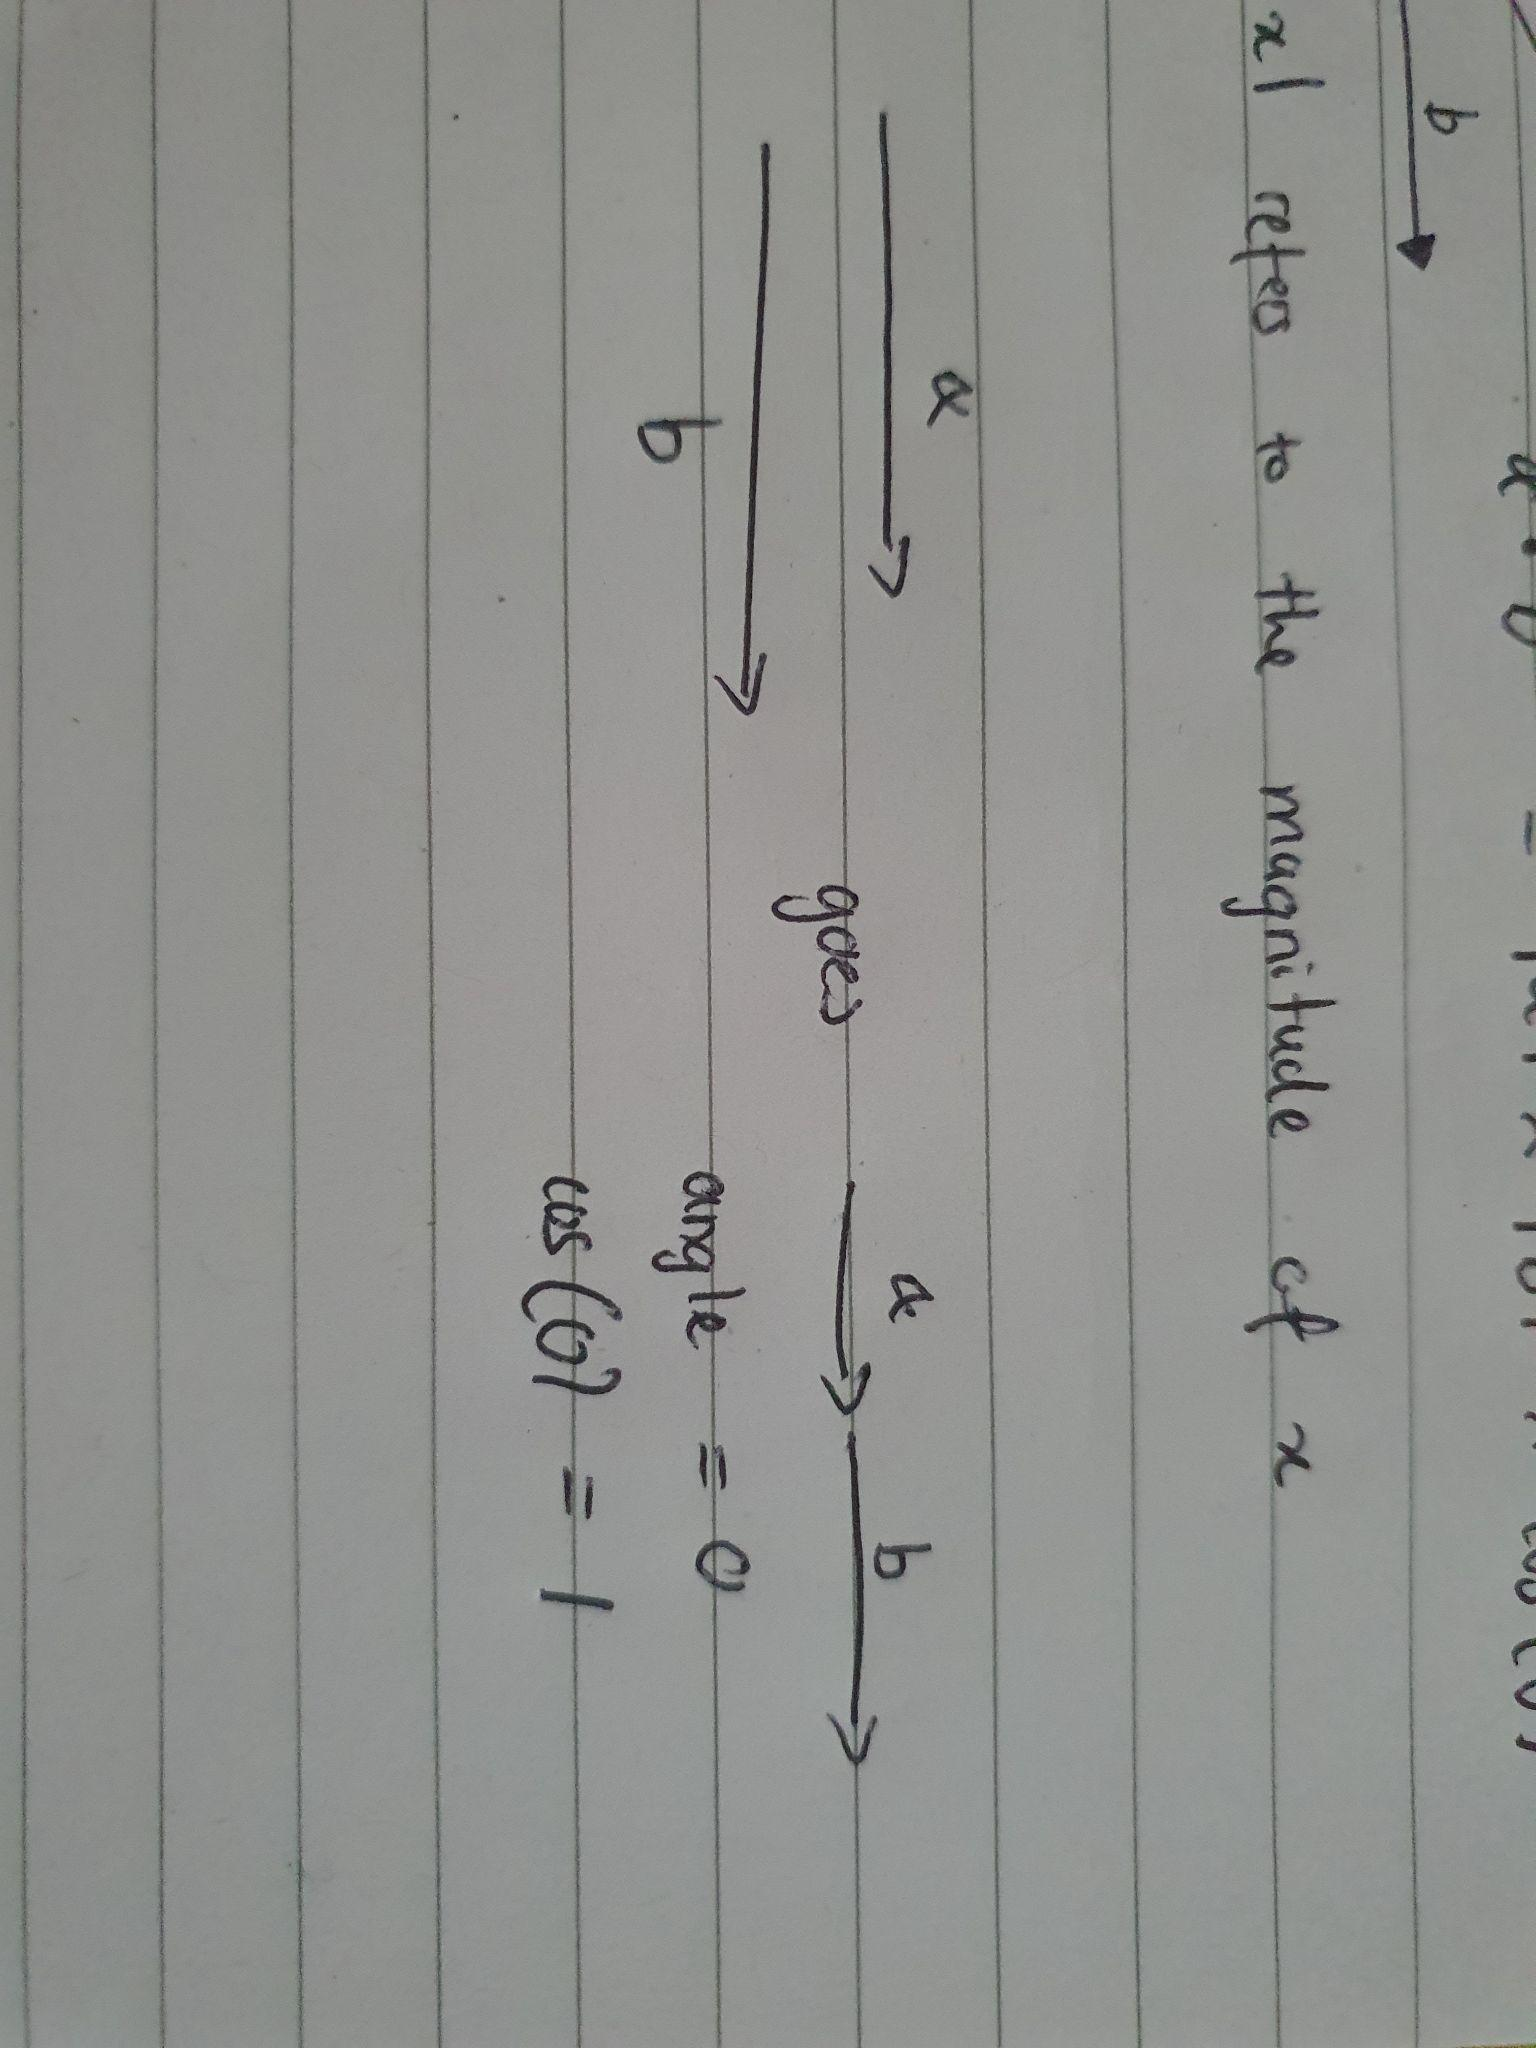 b
x| refers to the magnitude of x
a
b
goes
a b
angle = 0
cos(0) = 1